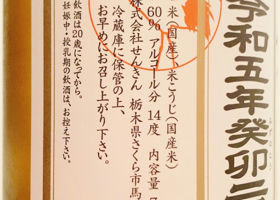 令和五年癸卯二
米(国産)、米こうじ(国産米)
60% アルコール分 14度 内容量 7
株式会社せんきん 栃木県さくら市馬
冷蔵庫に保管の上、
お早めにお召し上がり下さい。
飲酒は20歳になってから。
妊娠中・授乳期の飲酒は、お控え下さい。